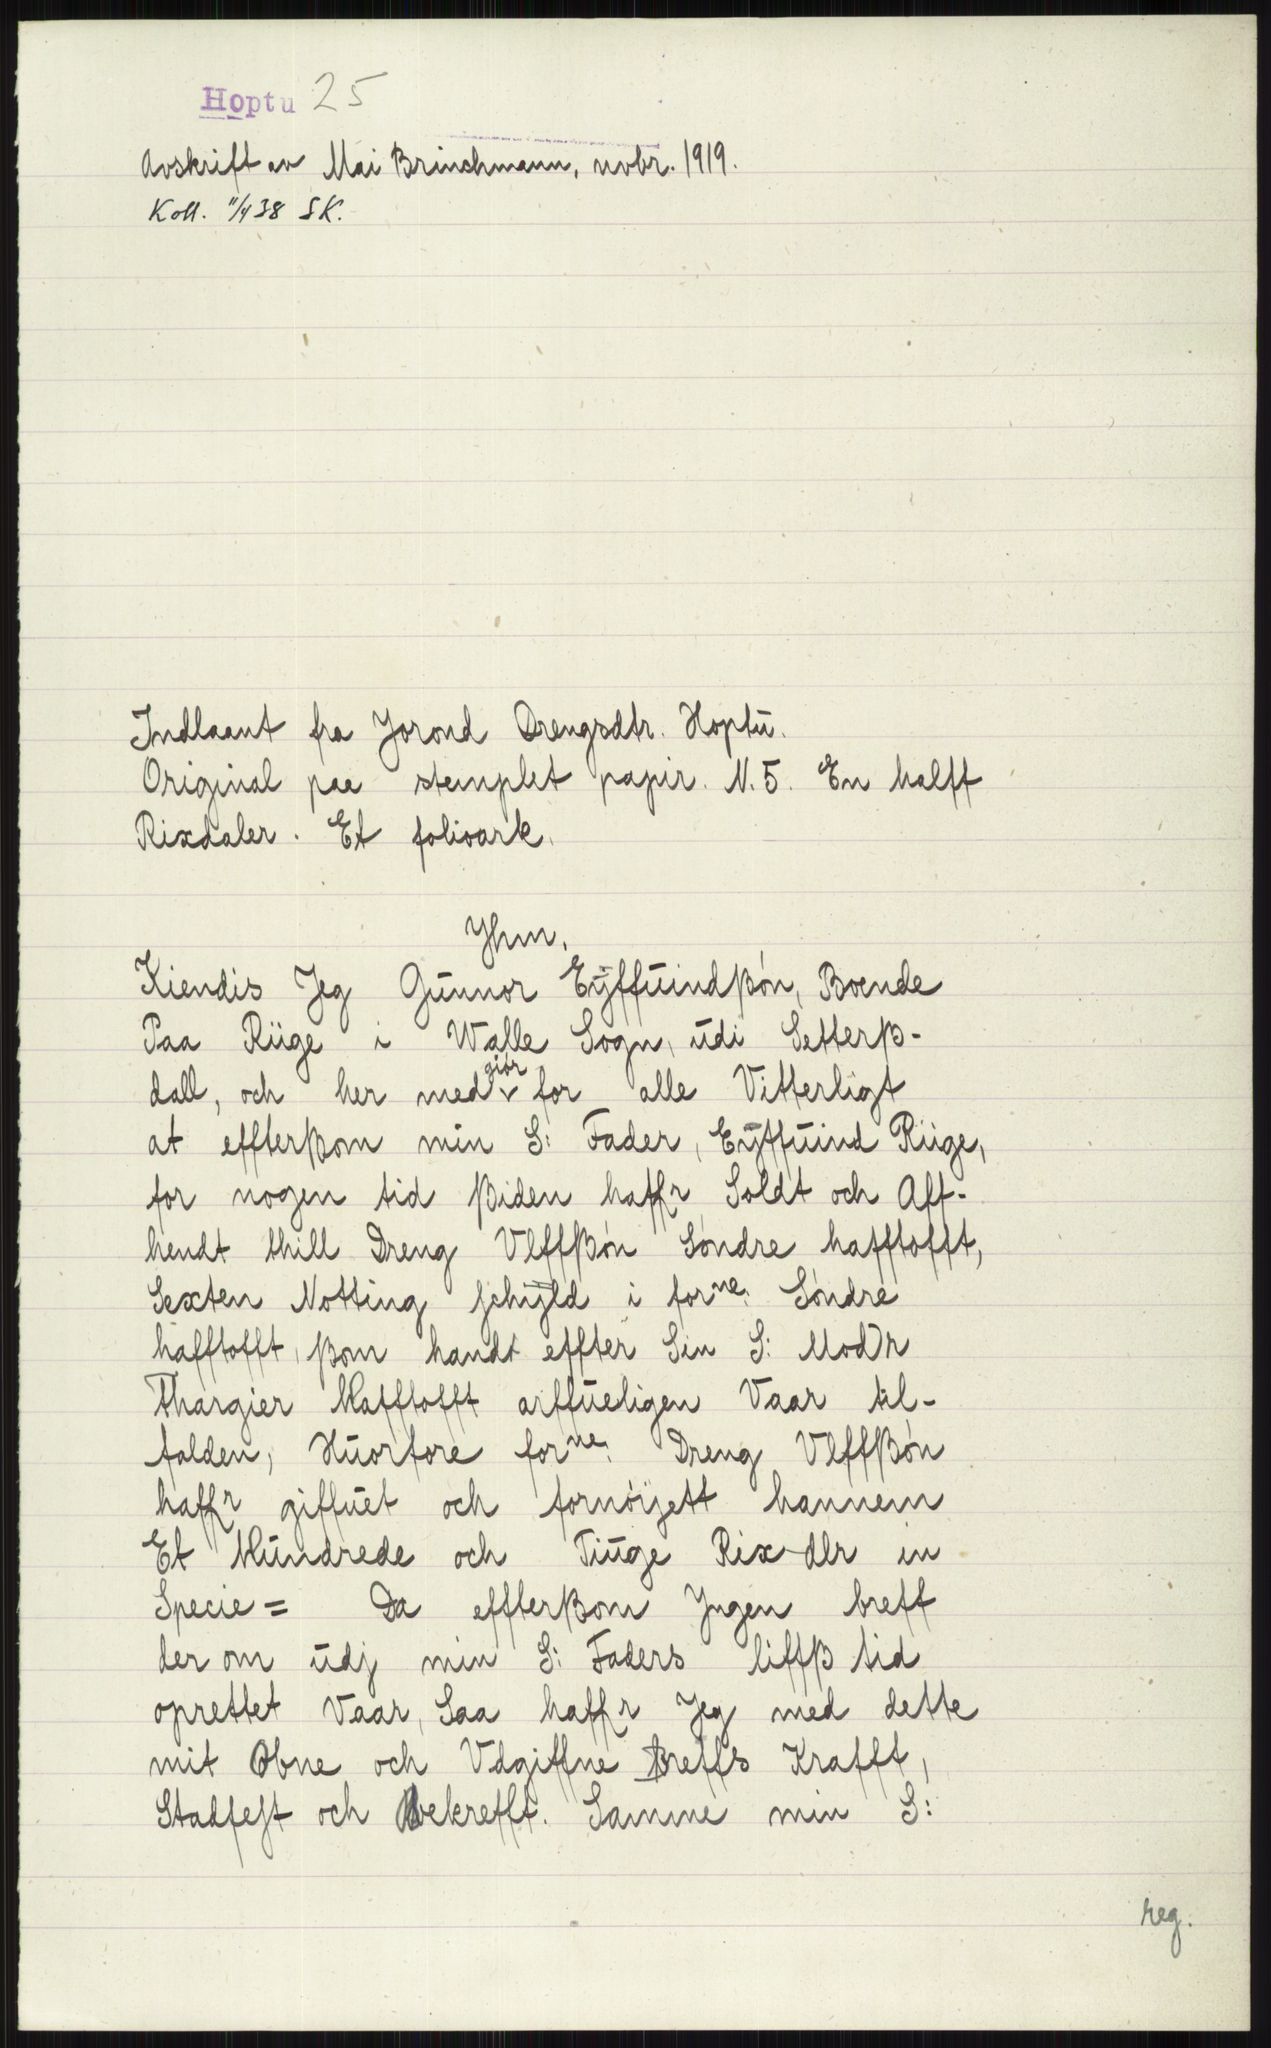 Hoptu 25
Avskrift av Mai Brinchmann, novbr. 1919.
Koll. 11/4 38 SK.
Indlaant fra Jorond Drengsdtr. Hoptu.
Original paa stemplet papir. N. 5. En halff
Rixdaler. Et folioark.
Yhm.
Kiendis Jeg Gunnor Eÿffuindßøn, Boende
Paa Riige i Walle Sogn, udi Setterß-
dall, och her med giør for alle Vitterligt
at effterßom min S: Fader, Eÿffuind Riige,
for nogen tid ßiden haffr Soldt och Aff-
hendt thill Dreng Vlffßøn Søndre hafftofft,
Sexten Notting schÿld i forne: Søndre
hafftofft, ßom handt effter Sin S: Modr
Thargier Hafftofft arffueligen Vaar til-
falden, Huorfore forne: Dreng Vlffßøn
haffr giffuet och fornøÿett hannem
Et Hundrede och Tiuge Rix dlr in
Specie = Da effterßom Yngen breff
der om udj min S: Faders liffß tid
oprettet Vaar, Saa haffr Jeg med dette
mit Obne och Vdgiffne Breffs Krafft,
Stadfest och Bekrefft. Samme min S:
reg.